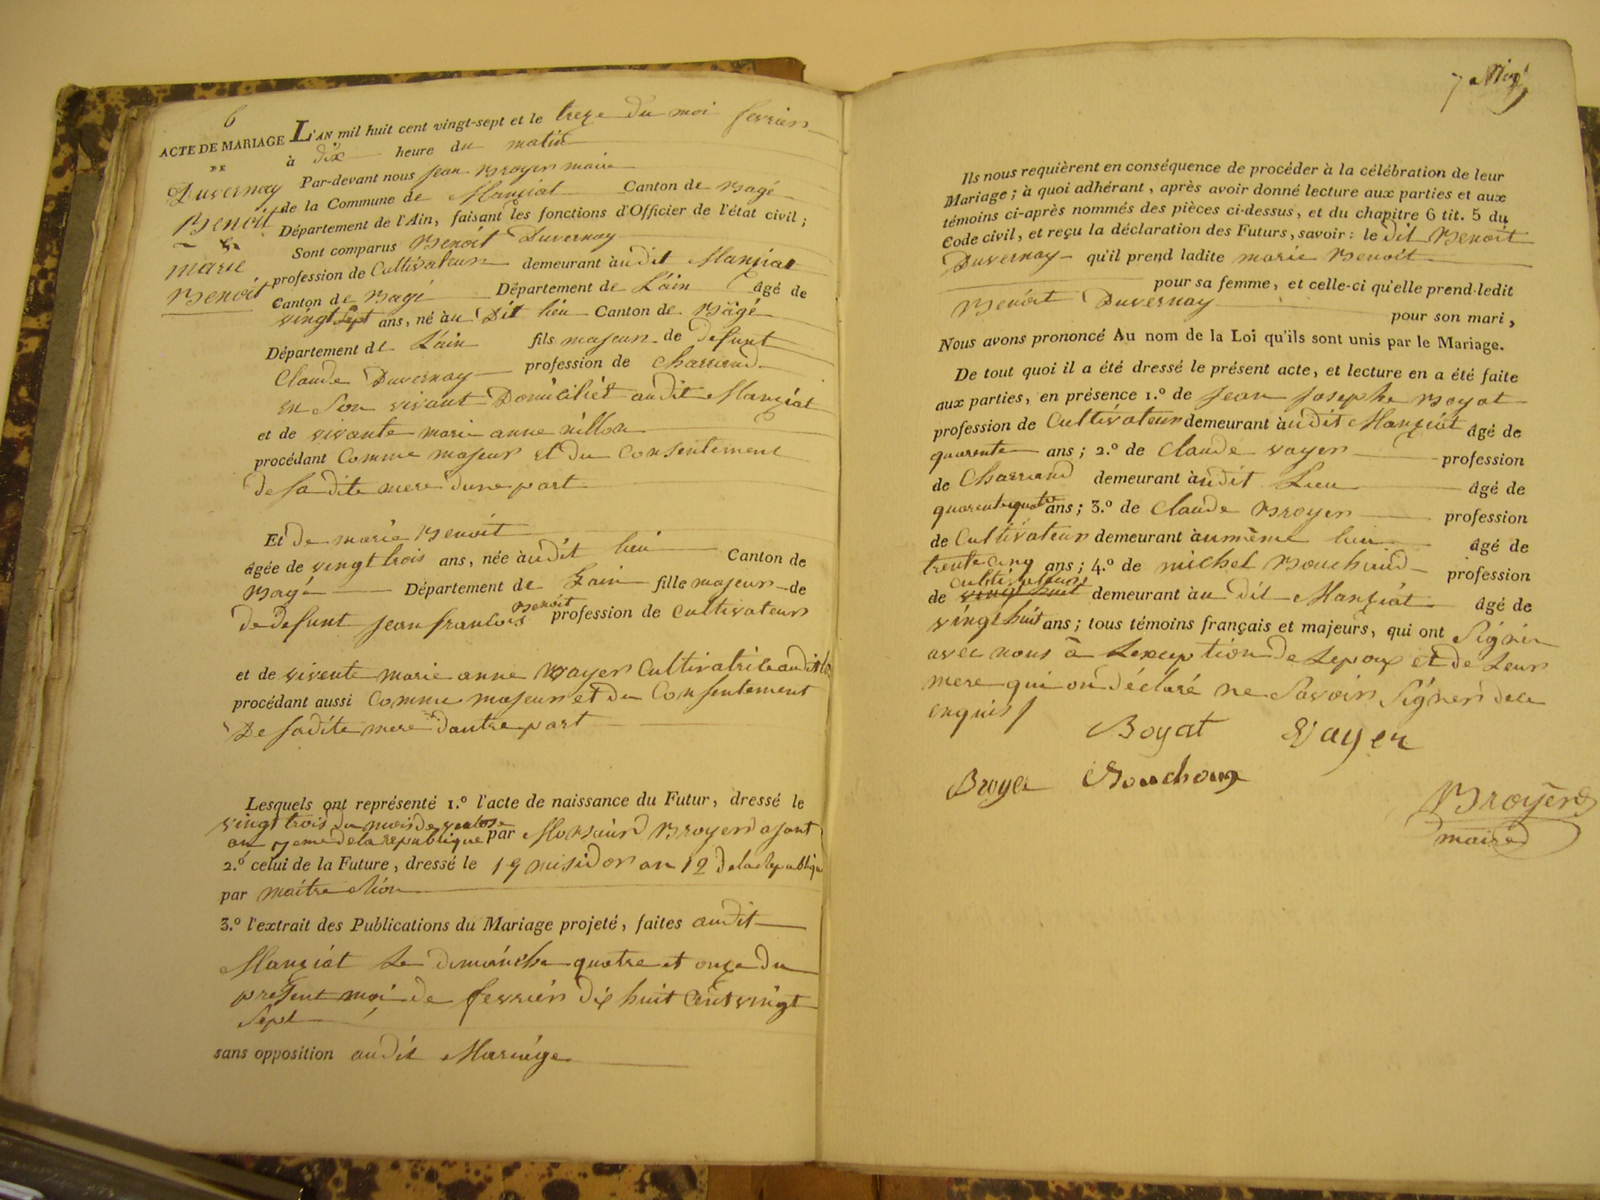 6
ACTE DE MARIAGE
DE
Duvernay
Benoit
&
marie
Benoit
L'AN mil huit cent vingt-sept et le treze du moi fevrier
à dix heure du matin
Par-devant nous jean Broyer maire
de la Commune de Manziat Canton de Bagé
Département de l'Ain, faisant les fonctions d'Officier de l'état civil;
Sont comparus Benoit Duvernay
profession de Cultivateur demeurant audit Manziat
Canton de Bagé Département de Lain âgé de
vingt sept ans, né au Dit lieu Canton de Bâgé
Département de Lain fils majeur de defunt
Claude Duvernay profession de Charrend
en Son vivant Domicilié audit Manziat
et de vivante marie anne
procédant Comme majeur et du Consentement
de sa dite mere dune part
Et de marie Benoit
âgée de vingt trois ans, née audit lieu Canton de
Bagé Département de Lain fille majeur de
de defunt jean francois Benoit profession de cultivateur
et de vivente marie anne Cultivatrice audit
procédant aussi Comme majeur et du Consentement
De sadite mere dautre part
Lesquels ont représenté 1.º l'acte de naissance du Futur, dressé le
vingt trois du mois de ventose
an 7eme de la republique par Monsieur Broyer ajoint
2.º celui de la Future, dressé le 19 misidor an 12 de la republique
par maitre
3.º l'extrait des Publications du Mariage projeté, faites audit
Manziat Le dimanche quatre et onze du
present moi de fevrier dix huit cent vingt
sept
sans opposition audit Mariage
7
Ils nous requièrent en conséquence de procéder à la célébration de leur
Mariage; à quoi adhérant, après avoir donné lecture aux parties et aux
témoins ci-après nommés des pièces ci-dessus, et du chapitre 6 tit. 5 du
Code civil, et reçu la déclaration des Futurs, savoir: le dit Benoit
Duvernay qu'il prend ladite marie Benoit
pour sa femme, et celle-ci qu'elle prend ledit
Benoit Duvernay pour son mari,
Nous avons prononcé Au nom de la Loi qu'ils sont unis par le Mariage.
De tout quoi il a été dressé le présent acte, et lecture en a été faite
aux parties, en présence 1.º de jean josephe Boyat
profession de Cultivateur demeurant audit Manziat âgé de
quarente ans; 2.º de Claude vayer profession
de Charrend demeurant audit Lieu âgé de
quarente quatre ans; 3.º de Claude Broyer profession
de Cultivateur demeurant au même lieu âgé de
trente cinq ans; 4.º de michel Bouchoud profession
de cultivateur vingt huit demeurant au dit Manziat âgé de
vingt huit ans; tous témoins français et majeurs, qui ont Signer
avec nous à Lexception de Lepoux et de Leur
mere qui on déclaré ne Savoir Signer de ce
enquis
Boyat Vayer
Broyer Bouchoux
Broyer
maire